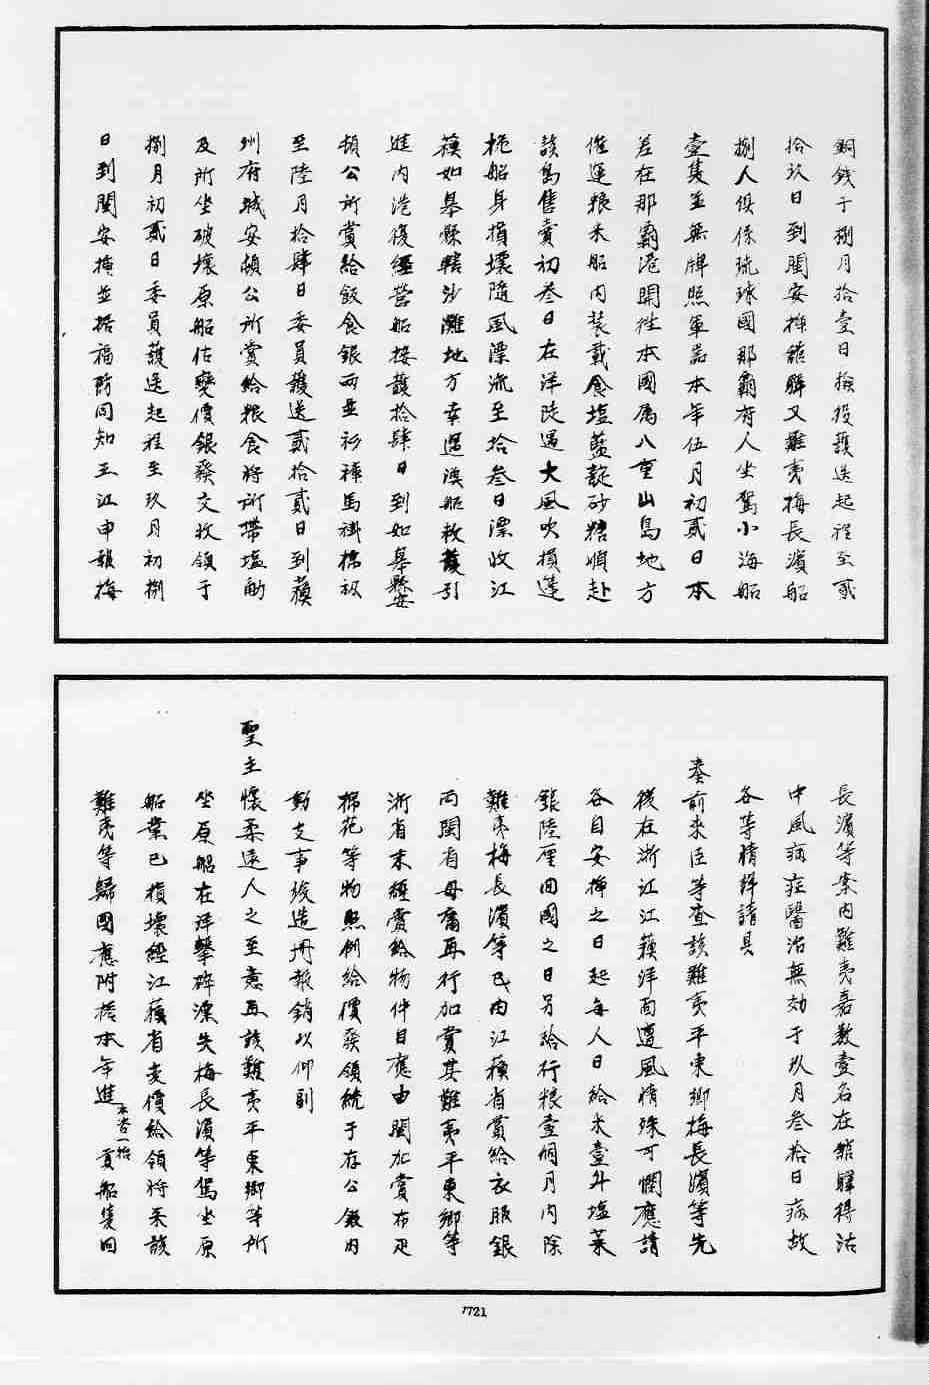 銅錢于捌月拾壹日撥役護送起程至貳
拾玖日到閩安插館驛又難夷梅長濱船
捌人俱係琉球國那霸府人坐駕小海船
壹隻並無牌照軍器本年伍月初貳日本
差在那霸港開往本國属八重山島地方
催運粮米船內装載食塩藍靛砂糖順赴
該島售賣初叁日在洋陡遇大風吹損篷
桅船身損壞隨風漂流至拾叁日漂收江
蘇如皋縣轄沙灘地方幸遇漁船救護引
進內港復經營船接護拾肆日到如皋縣安
頓公所賞給飯食銀両並衫褲馬褂棉被
至陸月拾肆日委員護送貳拾貳日到蘇
州府城安頓公所賞給粮食將所帶塩觔
及所坐破壞原船估變價銀發交收領于
捌月初貳日委員護送起程至玖月初捌
日到閩安插並據福防同知王江申報梅
長濱等案內難夷嘉數壹名在館驛得沾
中風病症醫治無効于玖月叁拾日病故
各等情詳請具
奏前來臣等查該難夷平東鄉梅長濱等先
後在浙江江蘇洋面遭風情殊可憫應請
各自安插之日起每人日給米壹升塩菜
銀陸厘回國之日另給行粮壹個月內除
難夷梅長濱等已由江蘇省賞給衣服銀
両閩省毋庸再行加賞其難夷平東鄉等
浙省未經賞給物件自應由閩加賞布疋
棉花等物照例給價發領統于存公銀內
動支事竣造册報銷以仰副
聖主懷柔遠人之至意再該難夷平東鄉等所
坐原船在洋擊碎漂失梅長濱等駕坐原
船業已損壞經江蘇省変價給領將來該
難夷等歸國應附搭本年進
本咨一抬
貢船隻回
7721